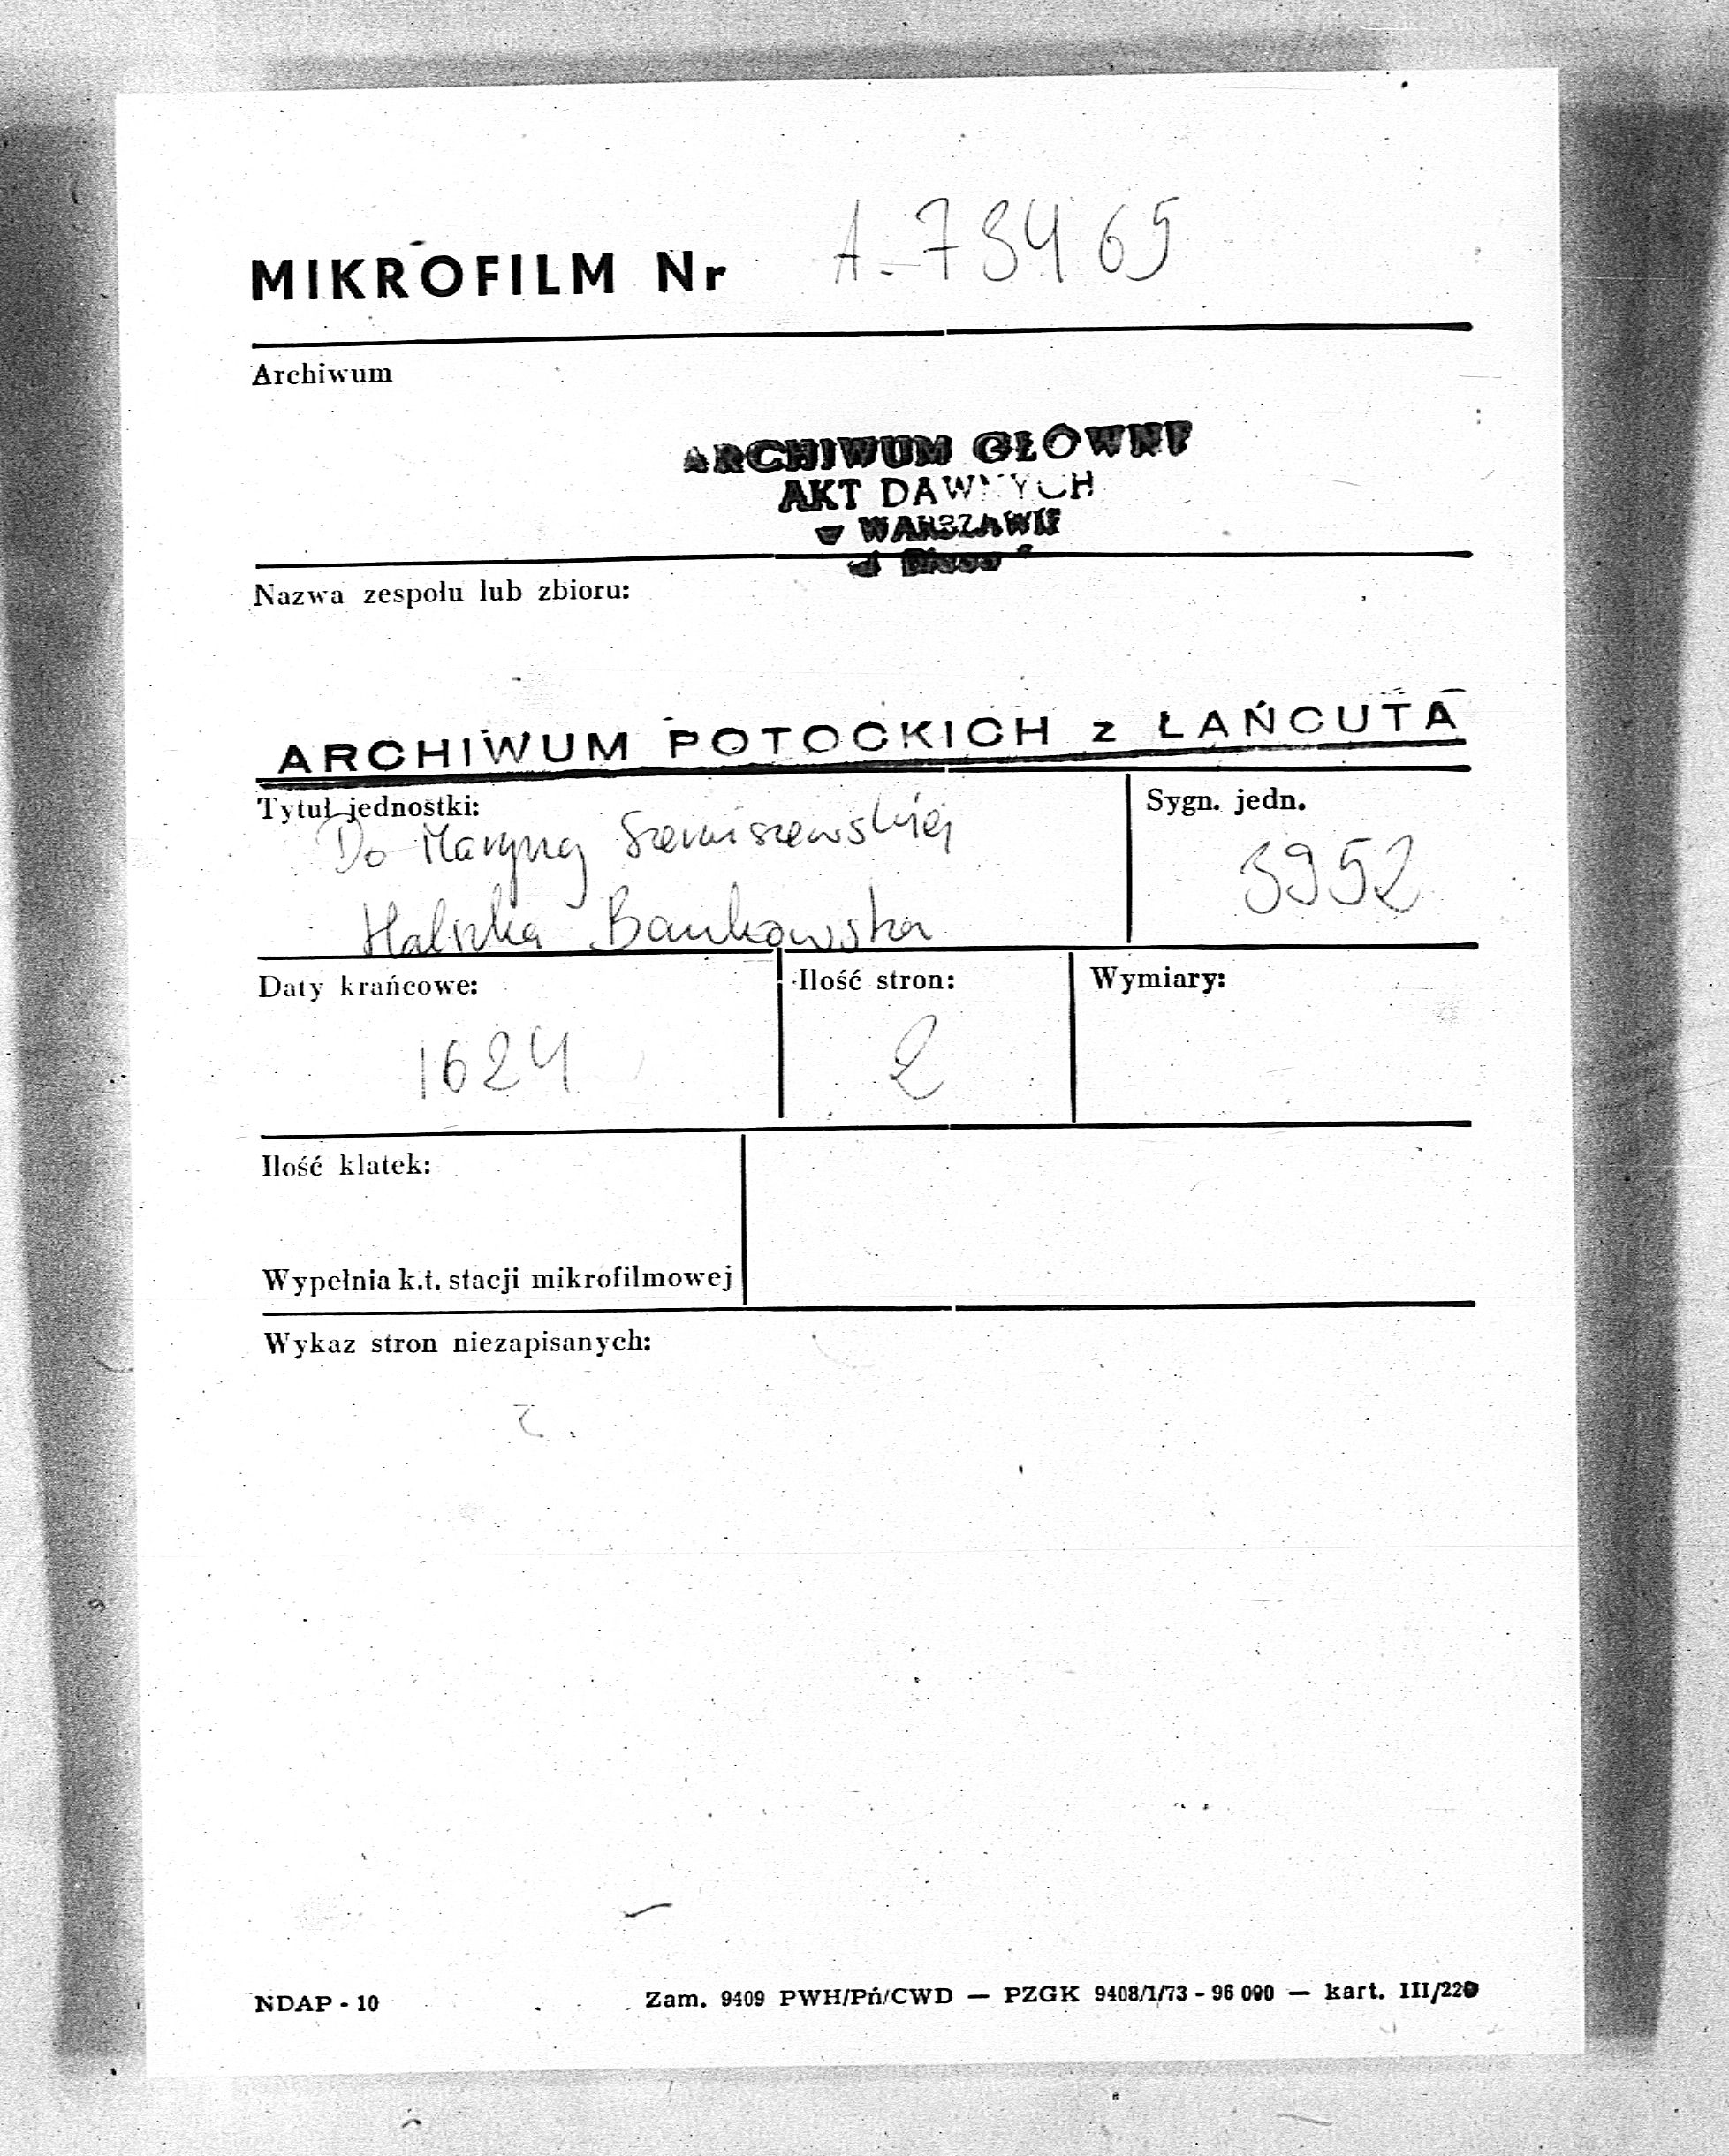 MIKROFILM Nr A-79465
Archiwum
ARCHIWUM GŁÓWNE
AKT DAWNYCH
w WARSZAWIE
Nazwa zespołu lub zbioru:
ARCHIWUM POTOCKICH z ŁAŃCUTA
Tytuł jednostki:
Sygn. jedn.
Do Maryny
3952
Halszka Bankowska
Daty krańcowe:
Ilość stron:
Wymiary:
1624
2
Ilość klatek:
Wypełnia k.t. stacji mikrofilmowej
Wykaz stron niezapisanych:
NDAP - 10
Zam. 9409 PWH/Pń/CWD — PZGK 9408/1/73 - 96 000 — kart. III/220